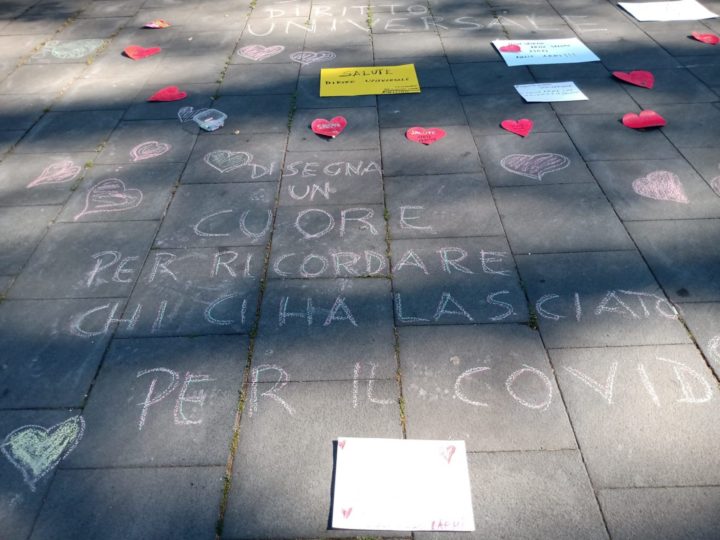 DIRITTO
UNIVERSALE
SALUTE
DIRITTO UNIVERSALE
SALUTE
DISEGNA
UN
CUORE
PER RICORDARE
CHI CI HA LASCIATO
PER IL COVID